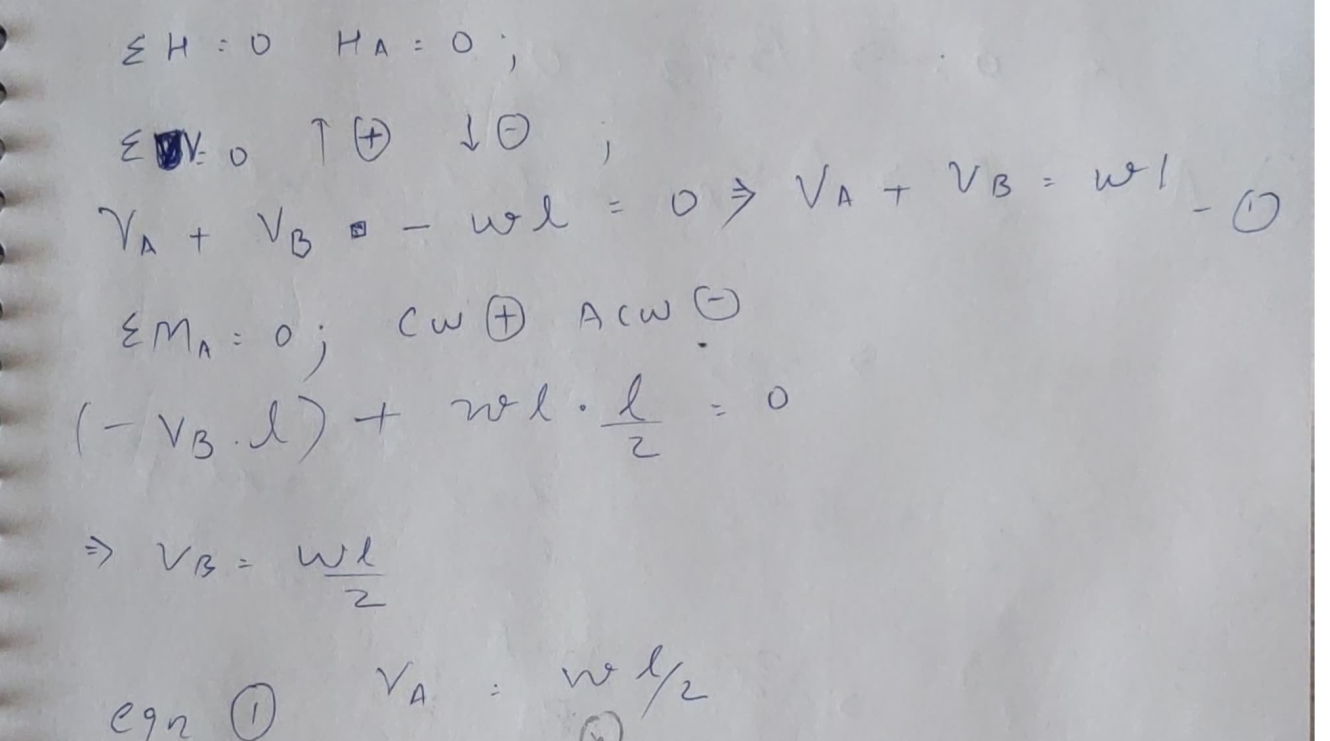 ΣH = 0 HA = 0 ;
ΣV = 0 ↑ ⊕ ↓ ⊖ ;
VA + VB - wl = 0 ⇒ VA + VB = wl - ①
ΣMA = 0 ; CW ⊕ ACW ⊖
(- VB . l) + wl . l/2 = 0
⇒ VB = wl/2
eqn ① VA = wl/2